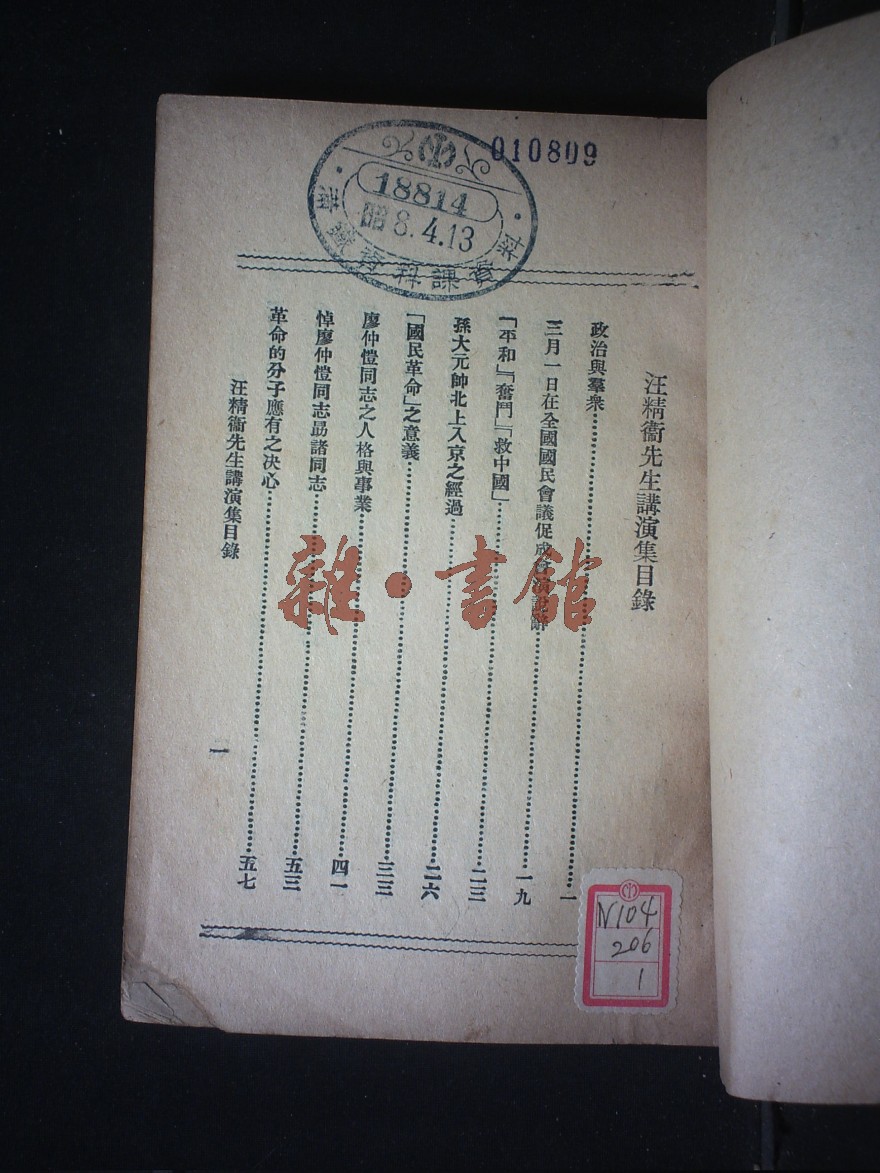 010809
18814
昭8.4.13
南鐵資料課資料
汪精衞先生講演集目錄
政治與羣衆……一
三月一日在全國國民會議促成會演說辭……一九
「平和」「奮鬥」「救中國」……二三
孫大元帥北上入京之經過……二六
「國民革命」之意義……三三
廖仲愷同志之人格與事業……四一
悼廖仲愷同志勗諸同志……五三
革命的分子應有之决心……五七
汪精衞先生講演集目錄
一
雜·書館
N104
206
1